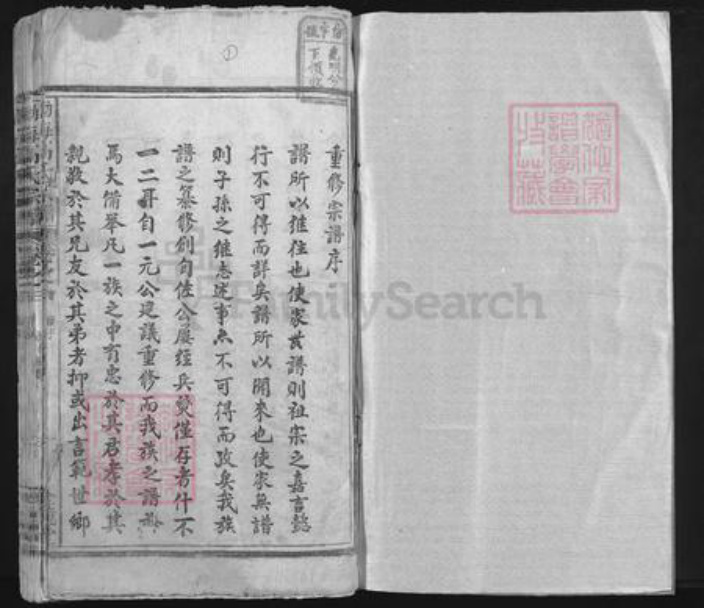 重修宗譜序
譜所以繼往也使家無譜則祖宗之嘉言懿
行不可得而詳矣譜所以開來也使家無譜
則子孫之繼志述事亦不可得而攷矣我族
譜之纂修創自佐公屢經兵燹僅存者什不
一二耳自一元公建議重修而我族之譜於
焉大備舉凡一族之中有忠於其君孝於其
親敬於其兄友於其弟者抑或出言範世鄉
FamilySearch
譜學會
收藏
①